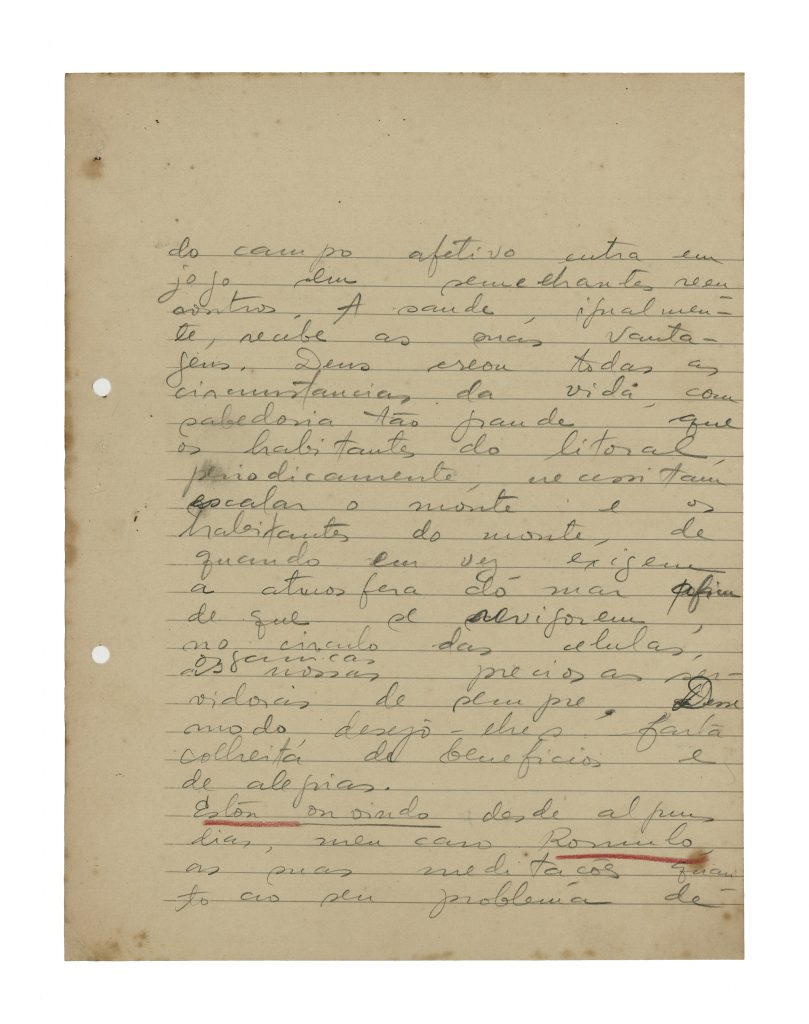 do campo afetivo entra em
jogo em semelhantes reen
contros. A saude, igualmen-
te, recebe as suas vanta-
gens. Deus creou todas as
circunstancias da vida, com
sabedoria tão grande que
os habitantes do litoral,
periodicamente, necessitam
escalar o monte e os
habitantes do monte, de
quando em vez exigem
a atmosfera do mar afim
de que se revigorem,
no circulo das celulas,
organicas
as nossas preciosas ser-
vidoras de sempre. Desse
modo, desejo-lhes farta
colheita de beneficios e
de alegrias.
Estou ouvindo desde alguns
dias, meu caro Romulo,
as suas meditacões quan
to ao seu problema de